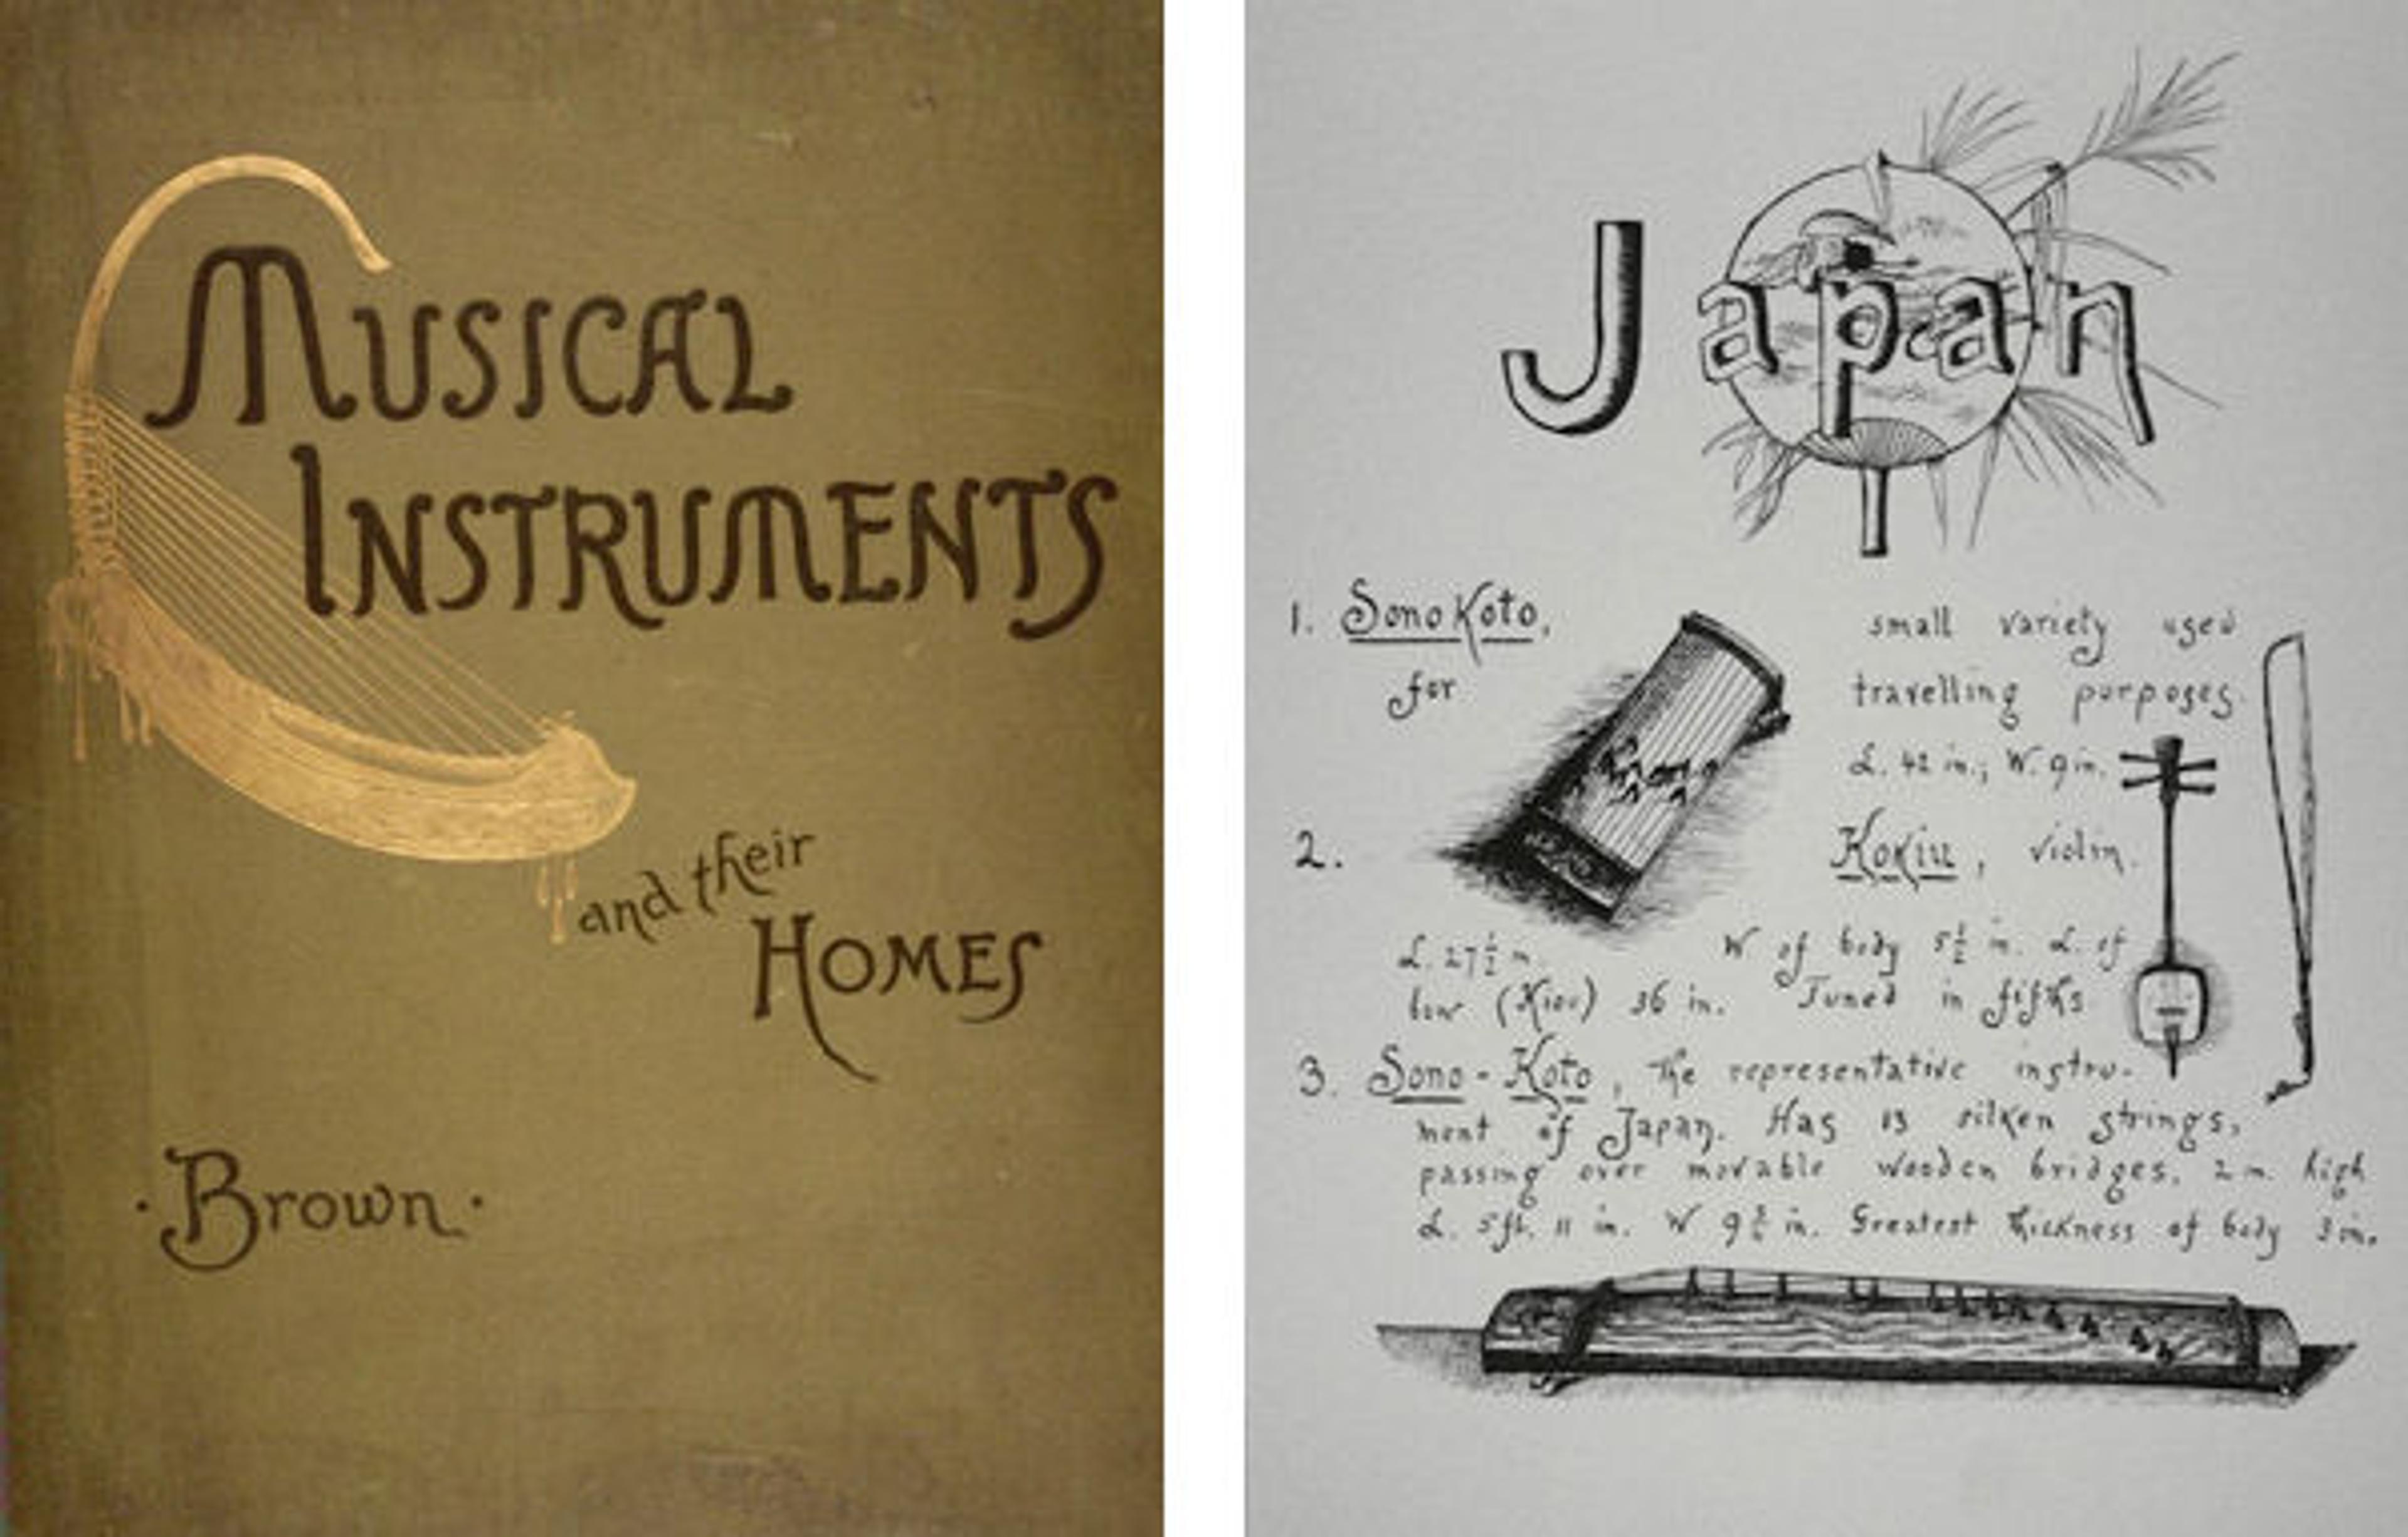 MUSICAL
INSTRUMENTS
and their
HOMES
·Brown·
Japan
1. Sono Koto, small variety used
for travelling purposes.
L. 42 in.; W. 9 in.
2. Kokiu, violin.
L. 27½ in. W of body 5½ in. L. of
bow (Kiou) 36 in. Tuned in fifths
3. Sono-Koto, the representative instru-
ment of Japan. Has 13 silken strings,
passing over movable wooden bridges, 2 in. high
L. 5ft. 11 in. W 9 in. Greatest thickness of body 3 in.